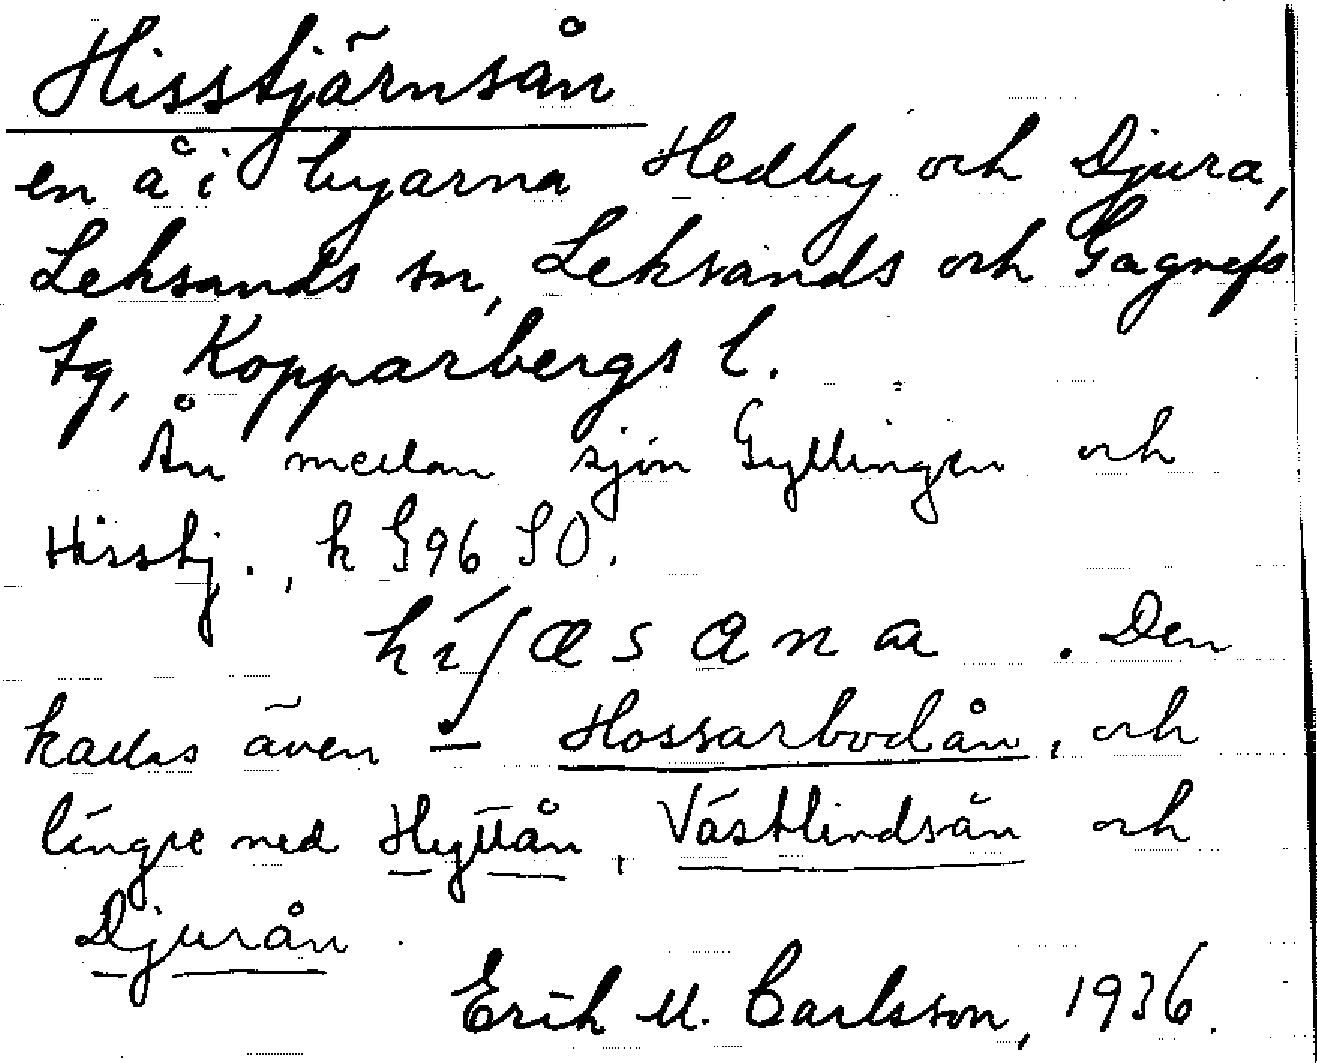 Hisstjärnsån
en å i byarna Hedby och Djura,
Leksands sn, Leksands och Gagnefs
tg, Kopparbergs l.
Ån mellan sjön Gyllingen och
Hisstj., k G96 SO.
híʃæsana. Den
kallas även — Hossarbodån, och
längre ned Hyttån, Västlindsån och
Djurån.
Erik M. Carlsson, 1936.